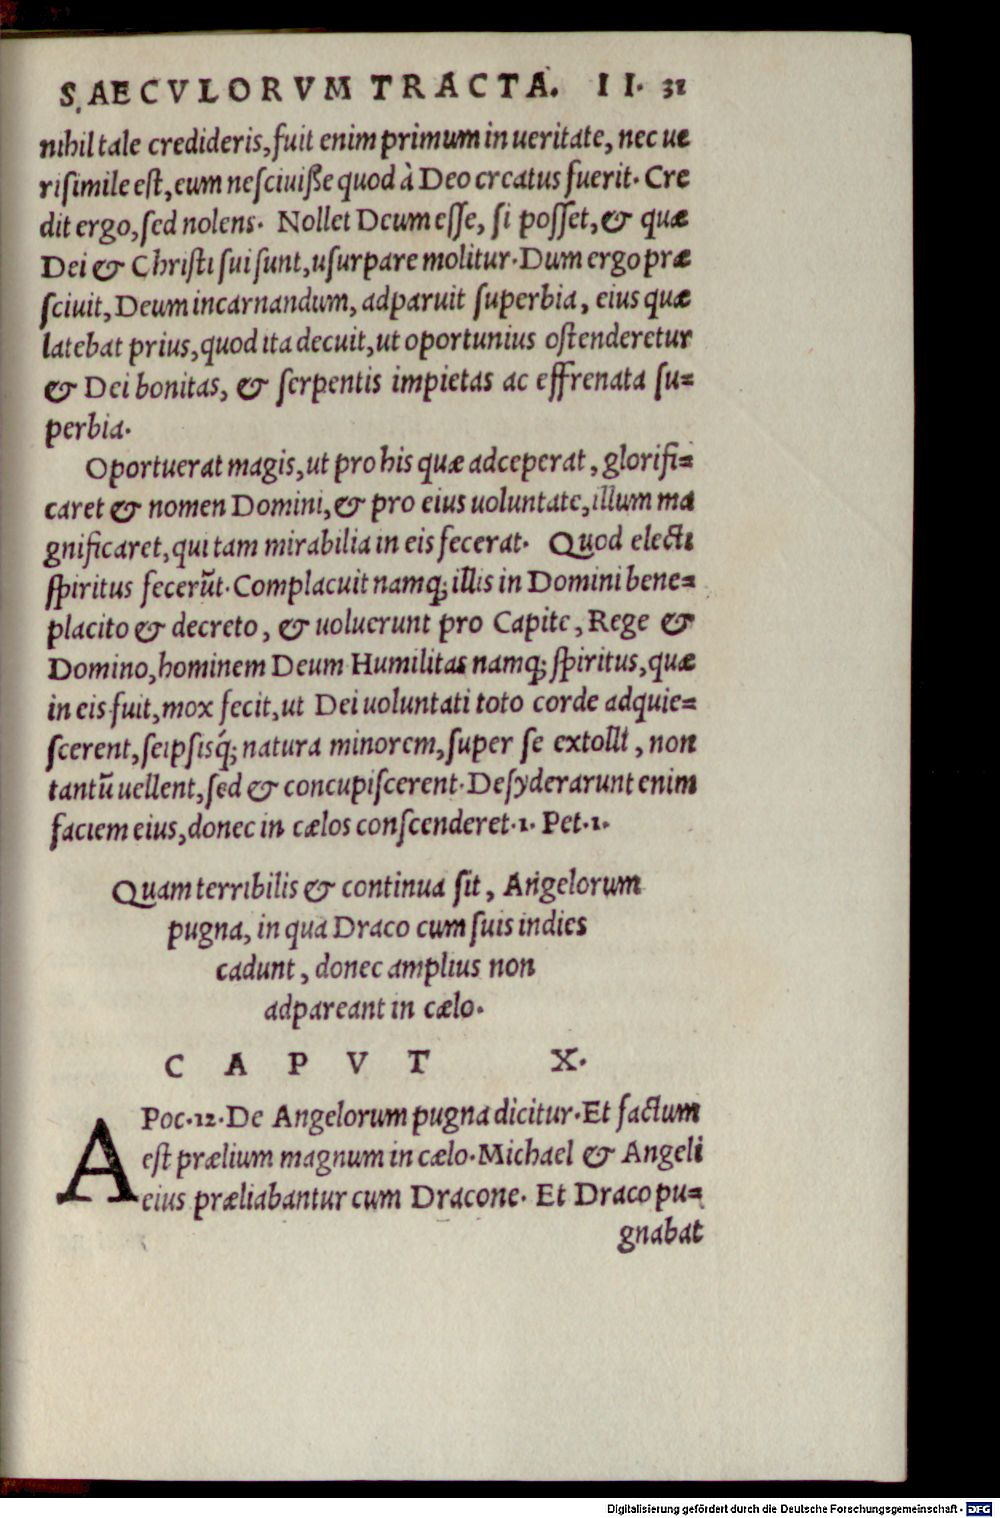 SAECVLORVM TRACTA. II. 31
nihil tale credideris, fuit enim primum in ueritate, nec ue
risimile est, eum nesciuiße quod à Deo creatus fuerit. Cre
dit ergo, sed nolens. Nollet Deum esse, si posset, & quæ
Dei & Christi sui sunt, usurpare molitur. Dum ergo præ
sciuit, Deum incarnandum, adparuit superbia, eius quæ
latebat prius, quod ita decuit, ut oportunius ostenderetur
& Dei bonitas, & serpentis impietas ac effrenata su=
perbia.
Oportuerat magis, ut pro his quæ adceperat, glorifi=
caret & nomen Domini, & pro eius uoluntate, illum ma
gnificaret, qui tam mirabilia in eis fecerat. Quod electi
spiritus fecerũt. Complacuit namq; illis in Domini bene=
placito & decreto, & uoluerunt pro Capite, Rege &
Domino, hominem Deum Humilitas namq; spiritus, quæ
in eis fuit, mox fecit, ut Dei uoluntati toto corde adquie=
scerent, seipsisq́; natura minorem, super se extolli, non
tantũ uellent, sed & concupiscerent. Desyderarunt enim
faciem eius, donec in cælos conscenderet. 1. Pet. 1.
Quam terribilis & continua sit, Angelorum
pugna, in qua Draco cum suis indies
cadunt, donec amplius non
adpareant in cælo.
CAPVT X.
APoc. 12. De Angelorum pugna dicitur. Et factum
est prælium magnum in cælo. Michael & Angeli
eius præliabantur cum Dracone. Et Draco pu=
gnabat
Digitalisierung gefördert durch die Deutsche Forschungsgemeinschaft - DFG